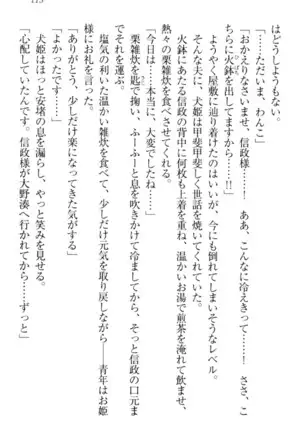 115
はどうしようもない。
「……ただいま、わんこ」
「おかえりなさいませ、信政様……！　ああ、こんなに冷えきって……！　ささ、こ
ちらに火鉢を出してますから……!!」
ようやく屋敷に辿り着けたのはいいが、今にも倒れてしまいそうなレベル。
そんな夫に、犬姫は甲斐甲斐しく世話を焼いてくれていた。
火鉢にあたる信政の背中に何枚も上着を重ね、温かいお湯で煎茶を淹れて飲ませ、
熱々の栗雑炊を食べさせてくれる。
「今日は……本当に、大変でしたね……」
栗雑炊を匙で掬い、ふーふーと息を吹きかけて冷ましてから、そっと信政の口元ま
でそれを運ぶ。
塩気の利いた温かい雑炊を食べて、少しだけ元気を取り戻しながら――青年はお姫
様にお礼を言った。
「ありがとう、少しだけ楽になってきた気がする」
「よかったです……！」
犬姫はほっと安堵の息を漏らし、やっと笑みを見せる。
「心配していたんです。信政様が大野湊へ行かれてから……ずっと」